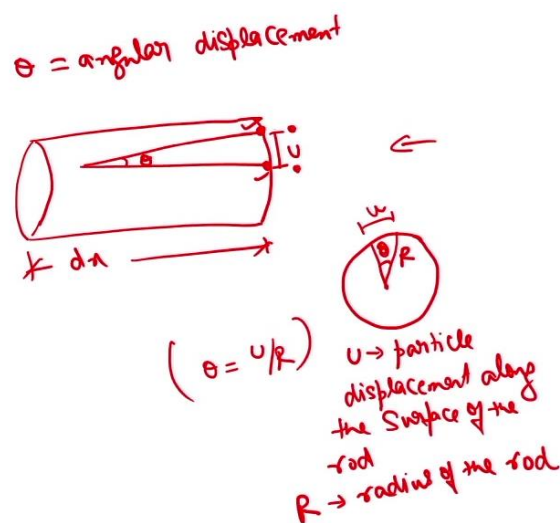 θ = angular displacement
θ
u
dx
u
θ
R
(θ = U/R)
U → particle
displacement along
the Surface of the
rod
R → radius of the rod